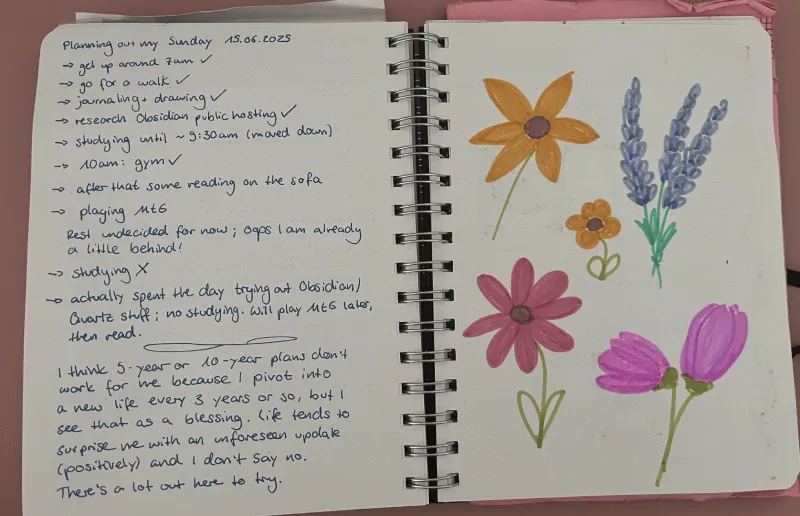 Planning out my Sunday 15.06.2025
→ get up around 7am ✓
→ go for a walk ✓
→ journaling + drawing ✓
→ research Obsidian public hosting ✓
→ studying until ~ 9:30am (moved down)
→ 10am: gym ✓
→ after that some reading on the sofa
→ playing MtG
Rest undecided for now; oops I am already
a little behind!
→ studying X
→ actually spent the day trying out Obsidian/
Quartz stuff; no studying. Will play MtG later,
then read.
I think 5-year or 10-year plans don't
work for me because I pivot into
a new life every 3 years or so, but I
see that as a blessing. Life tends to
surprise me with an unforeseen update
(positively) and I don't say no.
There's a lot out here to try.